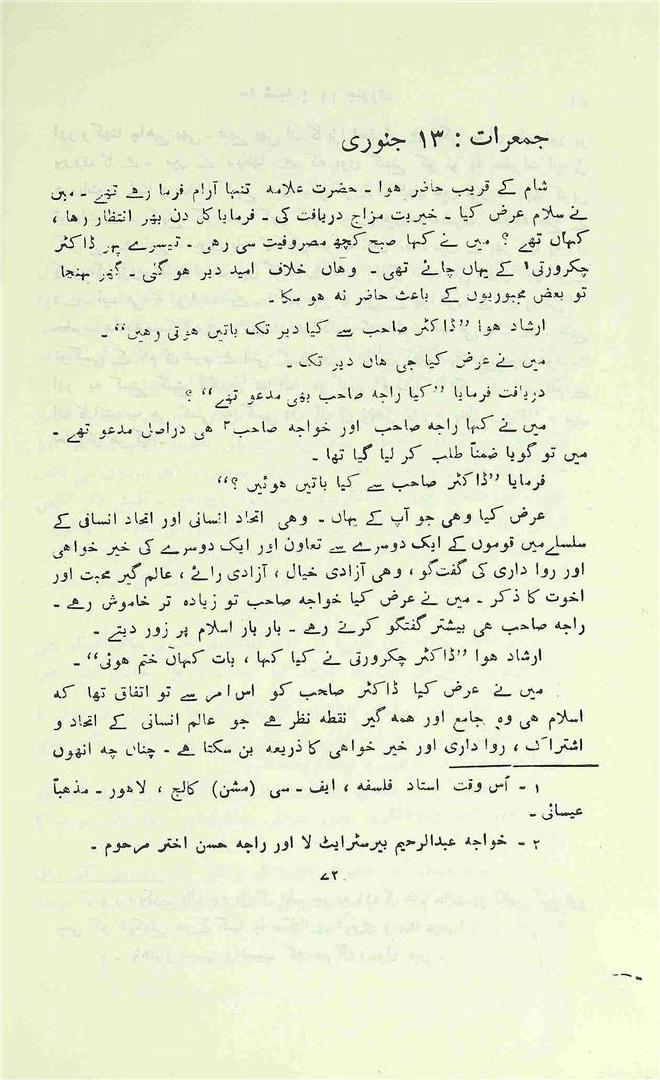 جمعرات : ۱۳ جنوری
شام کے قریب حاضر ہوا ۔ حضرت علامہ تنہا آرام فرما رہے تھے ۔ میں
نے سلام عرض کیا ۔ خیریت مزاج دریافت کی ۔ فرمایا کل دن بھر انتظار رہا ،
کہاں تھے ؟ میں نے کہا صبح کچھ مصروفیت سی رہی ۔ تیسرے پہر ڈاکٹر
چکرورتی۱ کے یہاں چائے تھی ۔ وہاں خلاف امید دیر ہو گئی ۔ گھر پہنچا
تو بعض مجبوریوں کے باعث حاضر نہ ہو سکا ۔
ارشاد ہوا ”ڈاکٹر صاحب سے کیا دیر تک باتیں ہوتی رہیں“ ۔
میں نے عرض کیا جی ہاں دیر تک ۔
دریافت فرمایا ”کیا راجہ صاحب بھی مدعو تھے“ ؟
میں نے کہا راجہ صاحب اور خواجہ صاحب۲ ہی دراصل مدعو تھے ۔
میں تو گویا ضمناً طلب کر لیا گیا تھا ۔
فرمایا ”ڈاکٹر صاحب سے کیا باتیں ہوئیں ؟“
عرض کیا وہی جو آپ کے یہاں ۔ وہی اتحاد انسانی اور اتحاد انسانی کے
سلسلے میں قوموں کے ایک دوسرے سے تعاون اور ایک دوسرے کی خیر خواہی
اور روا داری کی گفت گو ، وہی آزادی خیال ، آزادی رائے ، عالم گیر محبت اور
اخوت کا ذکر ۔ میں نے عرض کیا خواجہ صاحب تو زیادہ تر خاموش رہے ۔
راجہ صاحب ہی بیشتر گفتگو کرتے رہے ۔ بار بار اسلام پر زور دیتے ۔
ارشاد ہوا ”ڈاکٹر چکرورتی نے کیا کہا ، بات کہاں ختم ہوئی“ ۔
میں نے عرض کیا ڈاکٹر صاحب کو اس امر سے تو اتفاق تھا کہ
اسلام ہی وہ جامع اور ہمہ گیر نقطہ نظر ہے جو عالم انسانی کے اتحاد و
اشتراک ، روا داری اور خیر خواہی کا ذریعہ بن سکتا ہے ۔ چناں چہ انھوں
۱ ۔ اُس وقت استاد فلسفہ ، ایف ۔ سی (مشن) کالج ، لاہور ۔ مذہباً
عیسائی ۔
۲ ۔ خواجہ عبدالرحیم بیرسٹرایٹ لا اور راجہ حسن اختر مرحوم ۔
۷۲